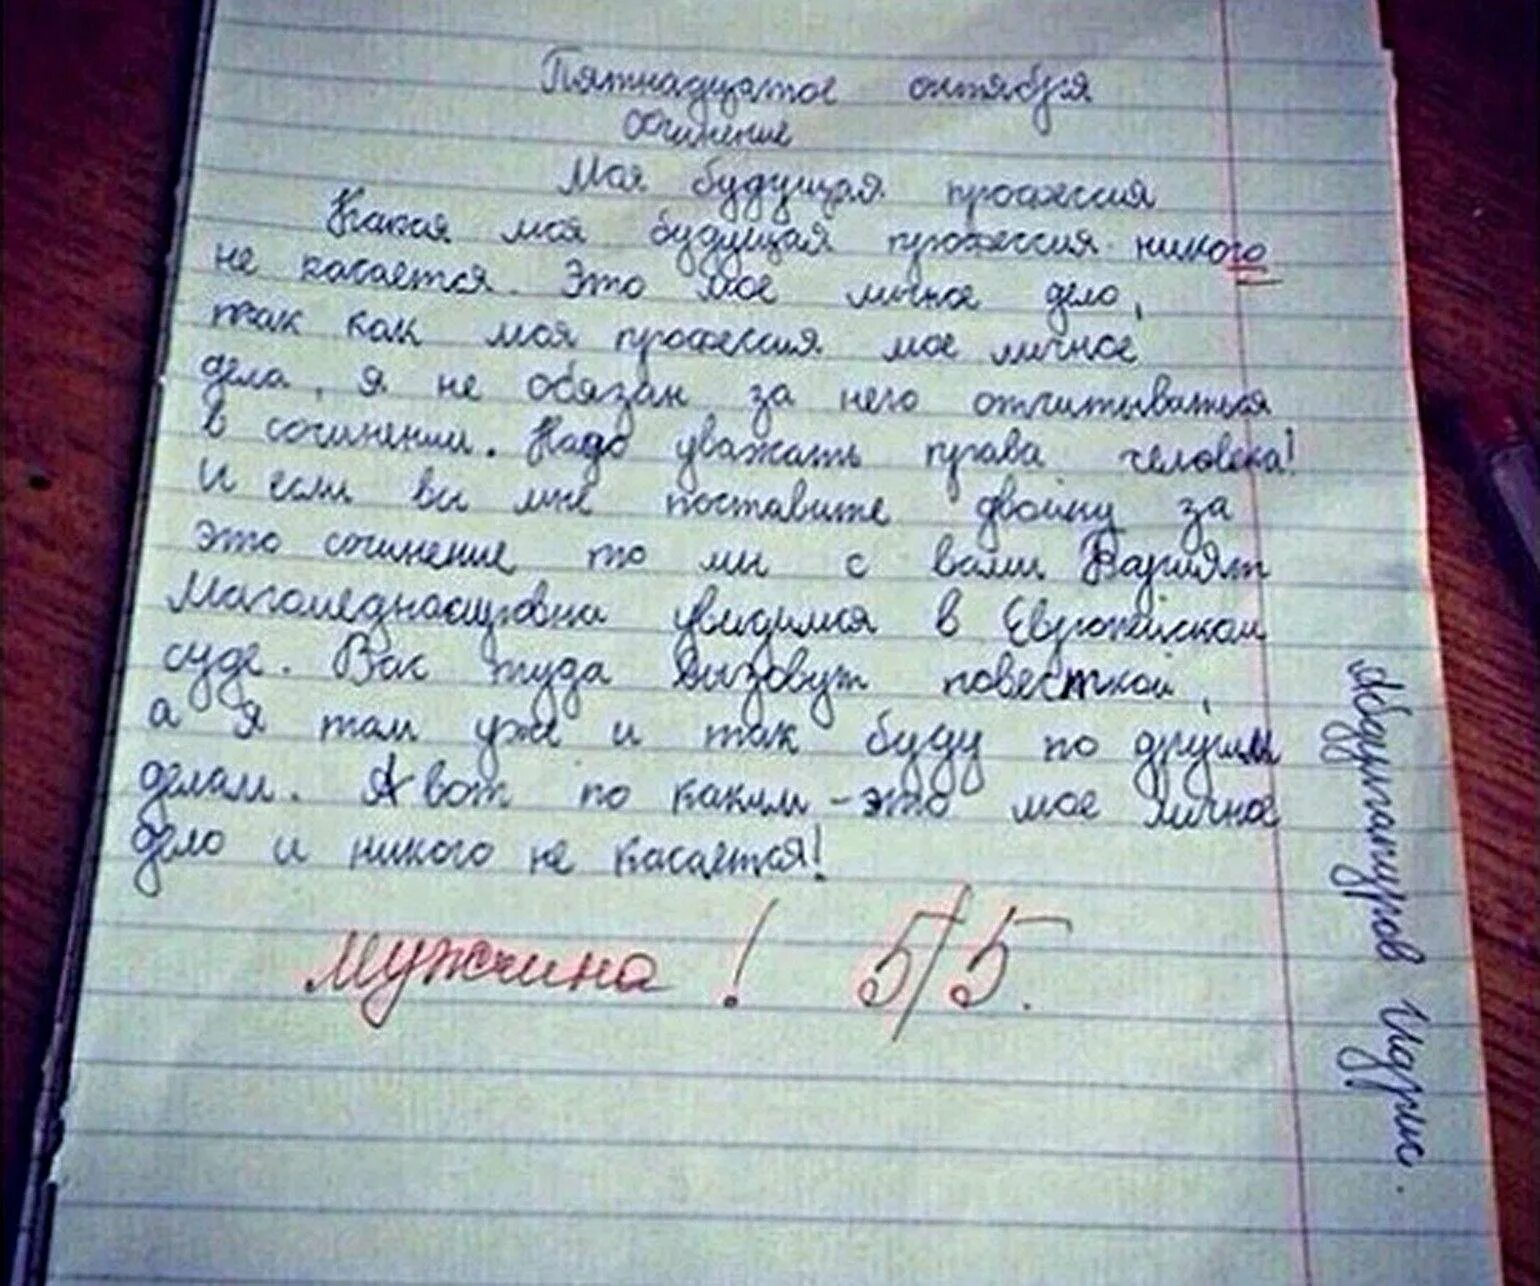 Пятнадцатое октября
Сочинение
Моя будущая профессия
Какая моя будущая профессия никого
не касается. Это мое личное дело,
так как моя профессия мое личное
дела, я не обязан за него отчитываться
в сочинении. Надо уважать права человека!
И если вы мне поставите двойку за
это сочинение то мы с вами Барият
Магомеднасуровна увидимся в Европейском
суде. Вас туда вызовут повесткой,
а я там уже и так буду по другим
делам. А вот по каким - это мое личное
дело и никого не касается!
Мужчина! 5/5.
Абдулгапуров Идрис.